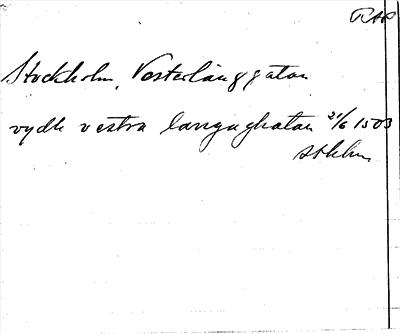 RAP
Stockholm, Vesterlånggatan
vydh vestra langaghatan 21/6 1503
Sthlm